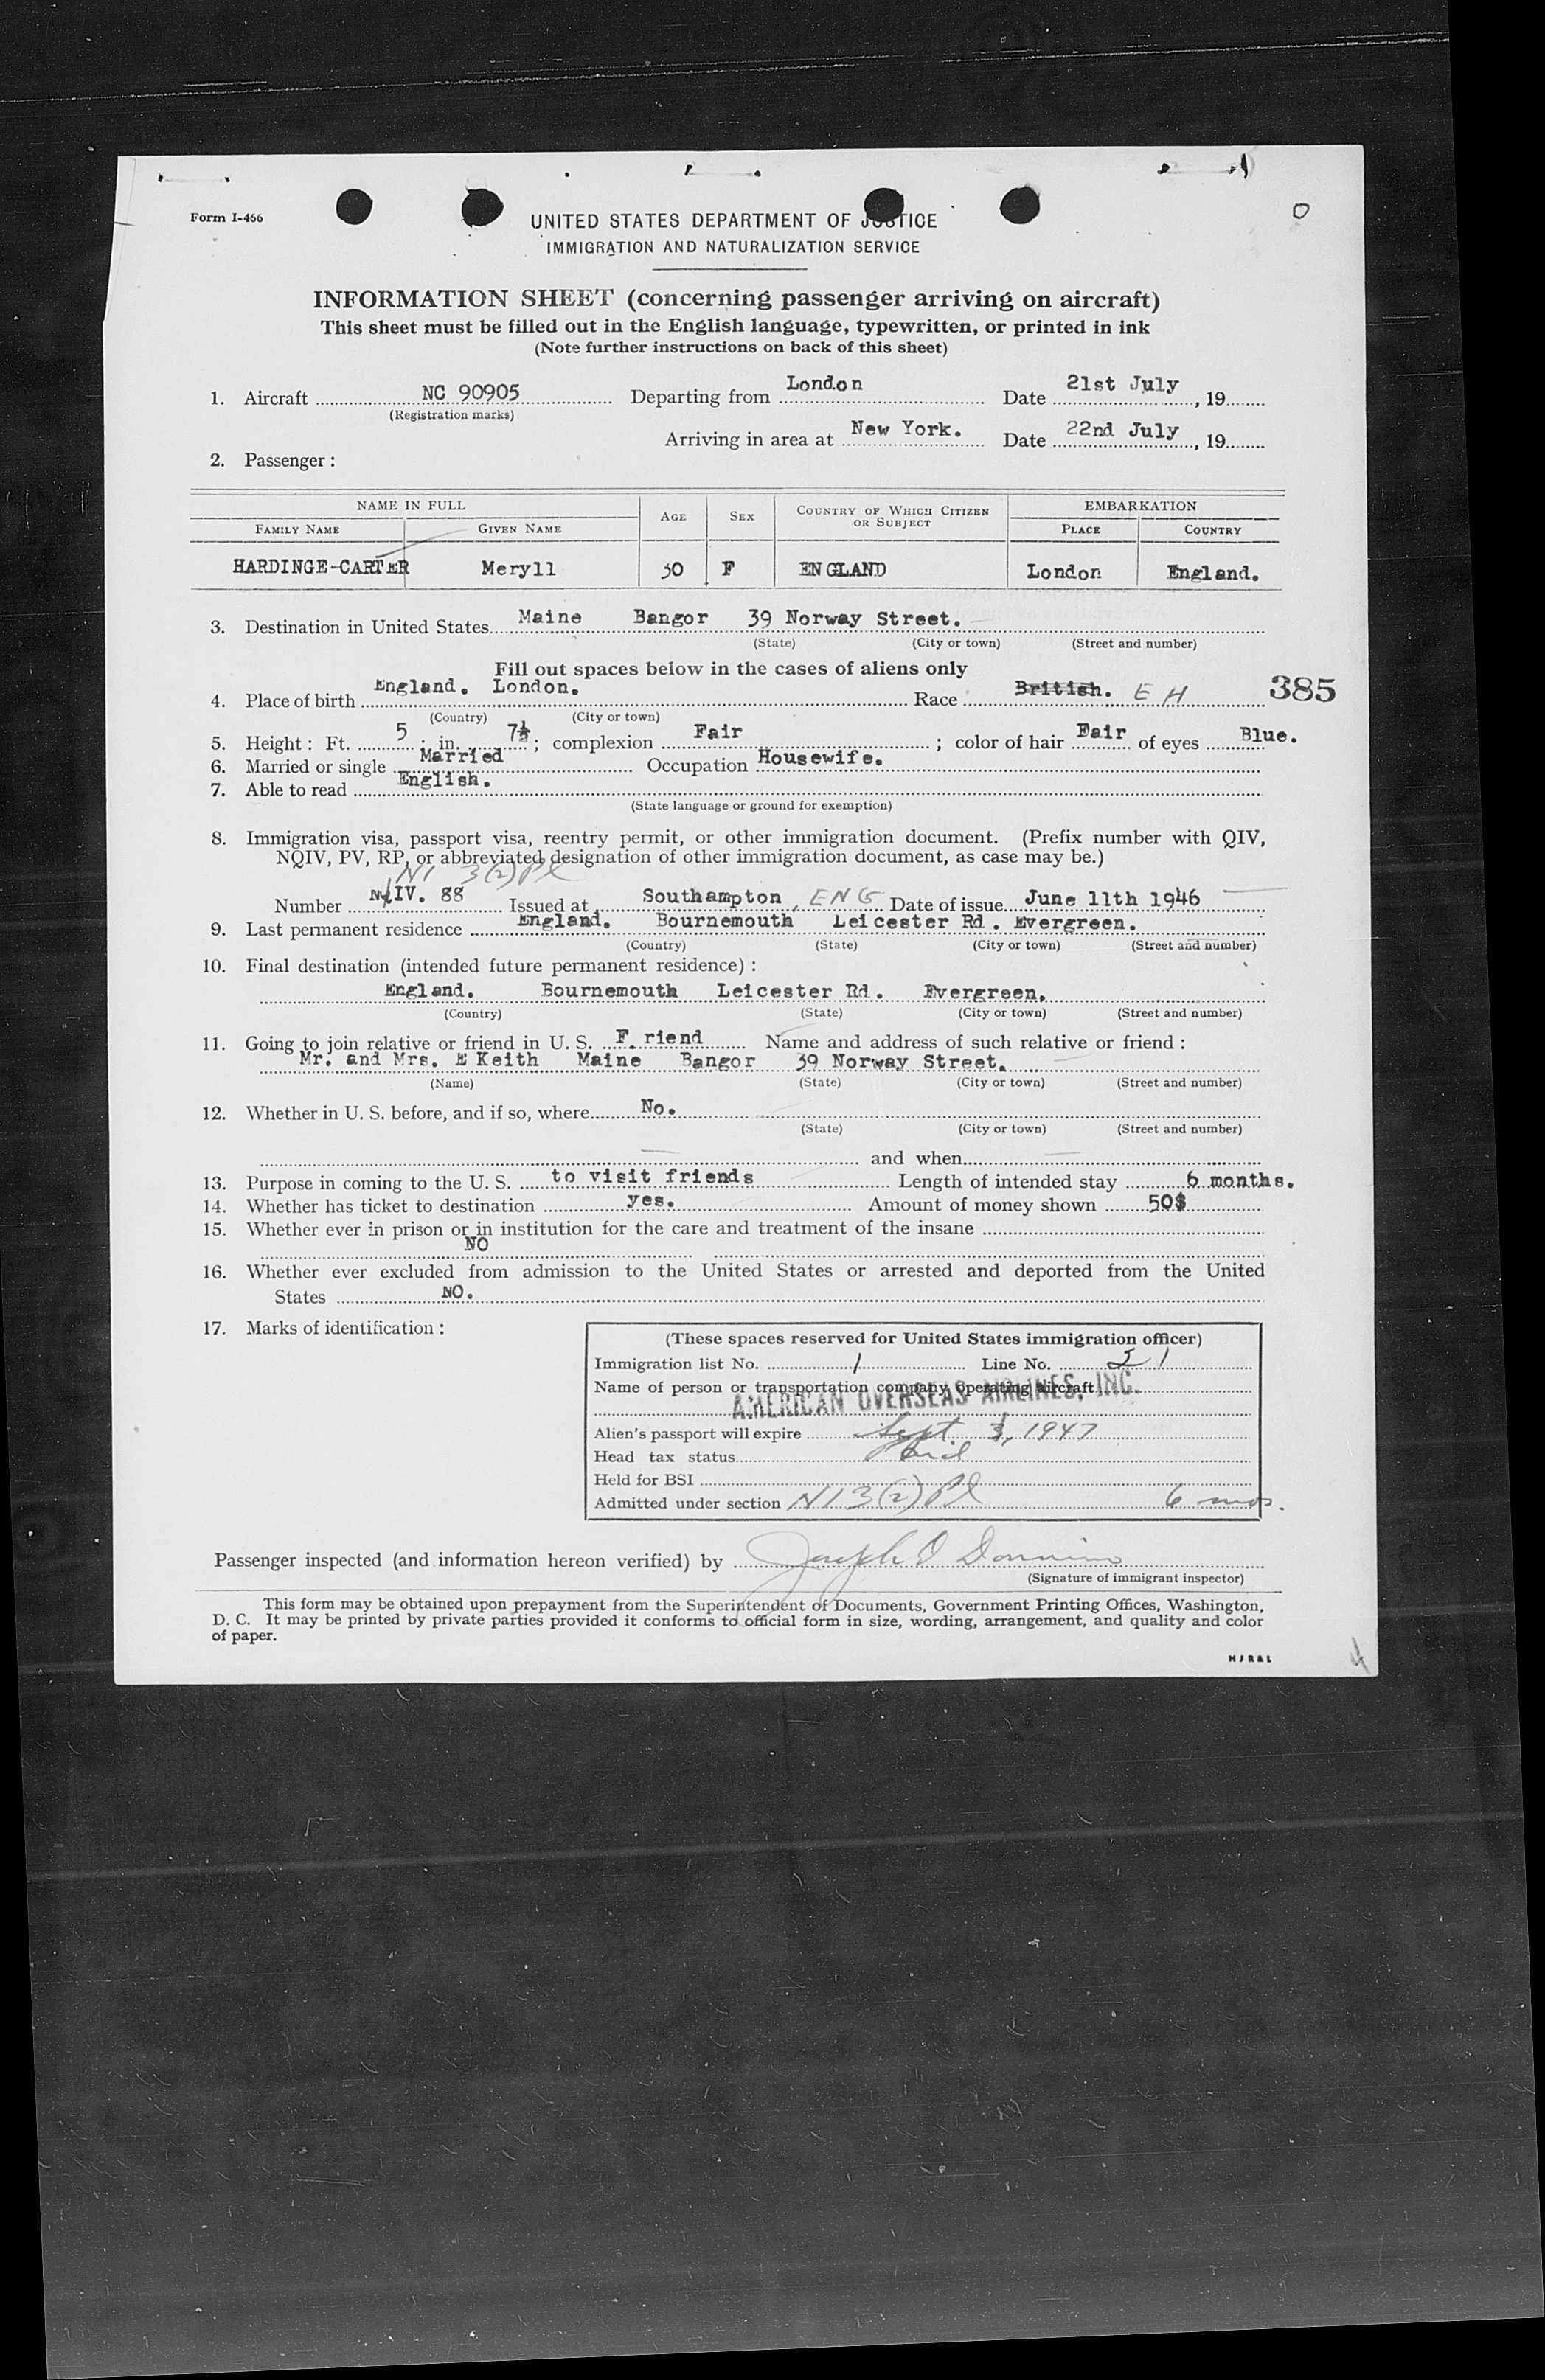 Form I-466
UNITED STATES DEPARTMENT OF JUSTICE
IMMIGRATION AND NATURALIZATION SERVICE
INFORMATION SHEET (concerning passenger arriving on aircraft)
This sheet must be filled out in the English language, typewritten, or printed in ink
(Note further instructions on back of this sheet)
1. Aircraft NC 90905 Departing from London Date 21st July, 19
(Registration marks)
Arriving in area at New York. Date 22nd July, 19
2. Passenger:
NAME IN FULL AGE SEX COUNTRY OF WHICH CITIZEN OR SUBJECT EMBARKATION
FAMILY NAME GIVEN NAME PLACE COUNTRY
HARDINGE-CARTER Meryll 30 F ENGLAND London England.
3. Destination in United States Maine Bangor 39 Norway Street.
(State) (City or town) (Street and number)
Fill out spaces below in the cases of aliens only
4. Place of birth England. London. Race British. E H 385
(Country) (City or town)
5. Height: Ft. 5; in. 7½; complexion Fair; color of hair Fair of eyes Blue.
6. Married or single Married Occupation Housewife.
7. Able to read English.
(State language or ground for exemption)
8. Immigration visa, passport visa, reentry permit, or other immigration document. (Prefix number with QIV,
NQIV, PV, RP, or abbreviated designation of other immigration document, as case may be.)
NI 3(2) Pl
Number IV. 88 Issued at Southampton, ENG Date of issue June 11th 1946
9. Last permanent residence England. Bournemouth Leicester Rd. Evergreen.
(Country) (State) (City or town) (Street and number)
10. Final destination (intended future permanent residence):
England. Bournemouth Leicester Rd. Evergreen.
(Country) (State) (City or town) (Street and number)
11. Going to join relative or friend in U. S. F riend Name and address of such relative or friend:
Mr. and Mrs. E Keith Maine Bangor 39 Norway Street.
(Name) (State) (City or town) (Street and number)
12. Whether in U. S. before, and if so, where No.
(State) (City or town) (Street and number)
and when
13. Purpose in coming to the U. S. to visit friends Length of intended stay 6 months.
14. Whether has ticket to destination yes. Amount of money shown 50$
15. Whether ever in prison or in institution for the care and treatment of the insane
NO
16. Whether ever excluded from admission to the United States or arrested and deported from the United
States NO.
17. Marks of identification:
(These spaces reserved for United States immigration officer)
Immigration list No. 1 Line No. 21
Name of person or transportation company operating aircraft
AMERICAN OVERSEAS AIRLINES, INC.
Alien's passport will expire Sept. 3, 1947
Head tax status Paid
Held for BSI
Admitted under section NI 3(2) Pl 6 mos.
Passenger inspected (and information hereon verified) by Joseph
(Signature of immigrant inspector)
This form may be obtained upon prepayment from the Superintendent of Documents, Government Printing Offices, Washington,
D. C. It may be printed by private parties provided it conforms to official form in size, wording, arrangement, and quality and color
of paper.
H J R & L
4